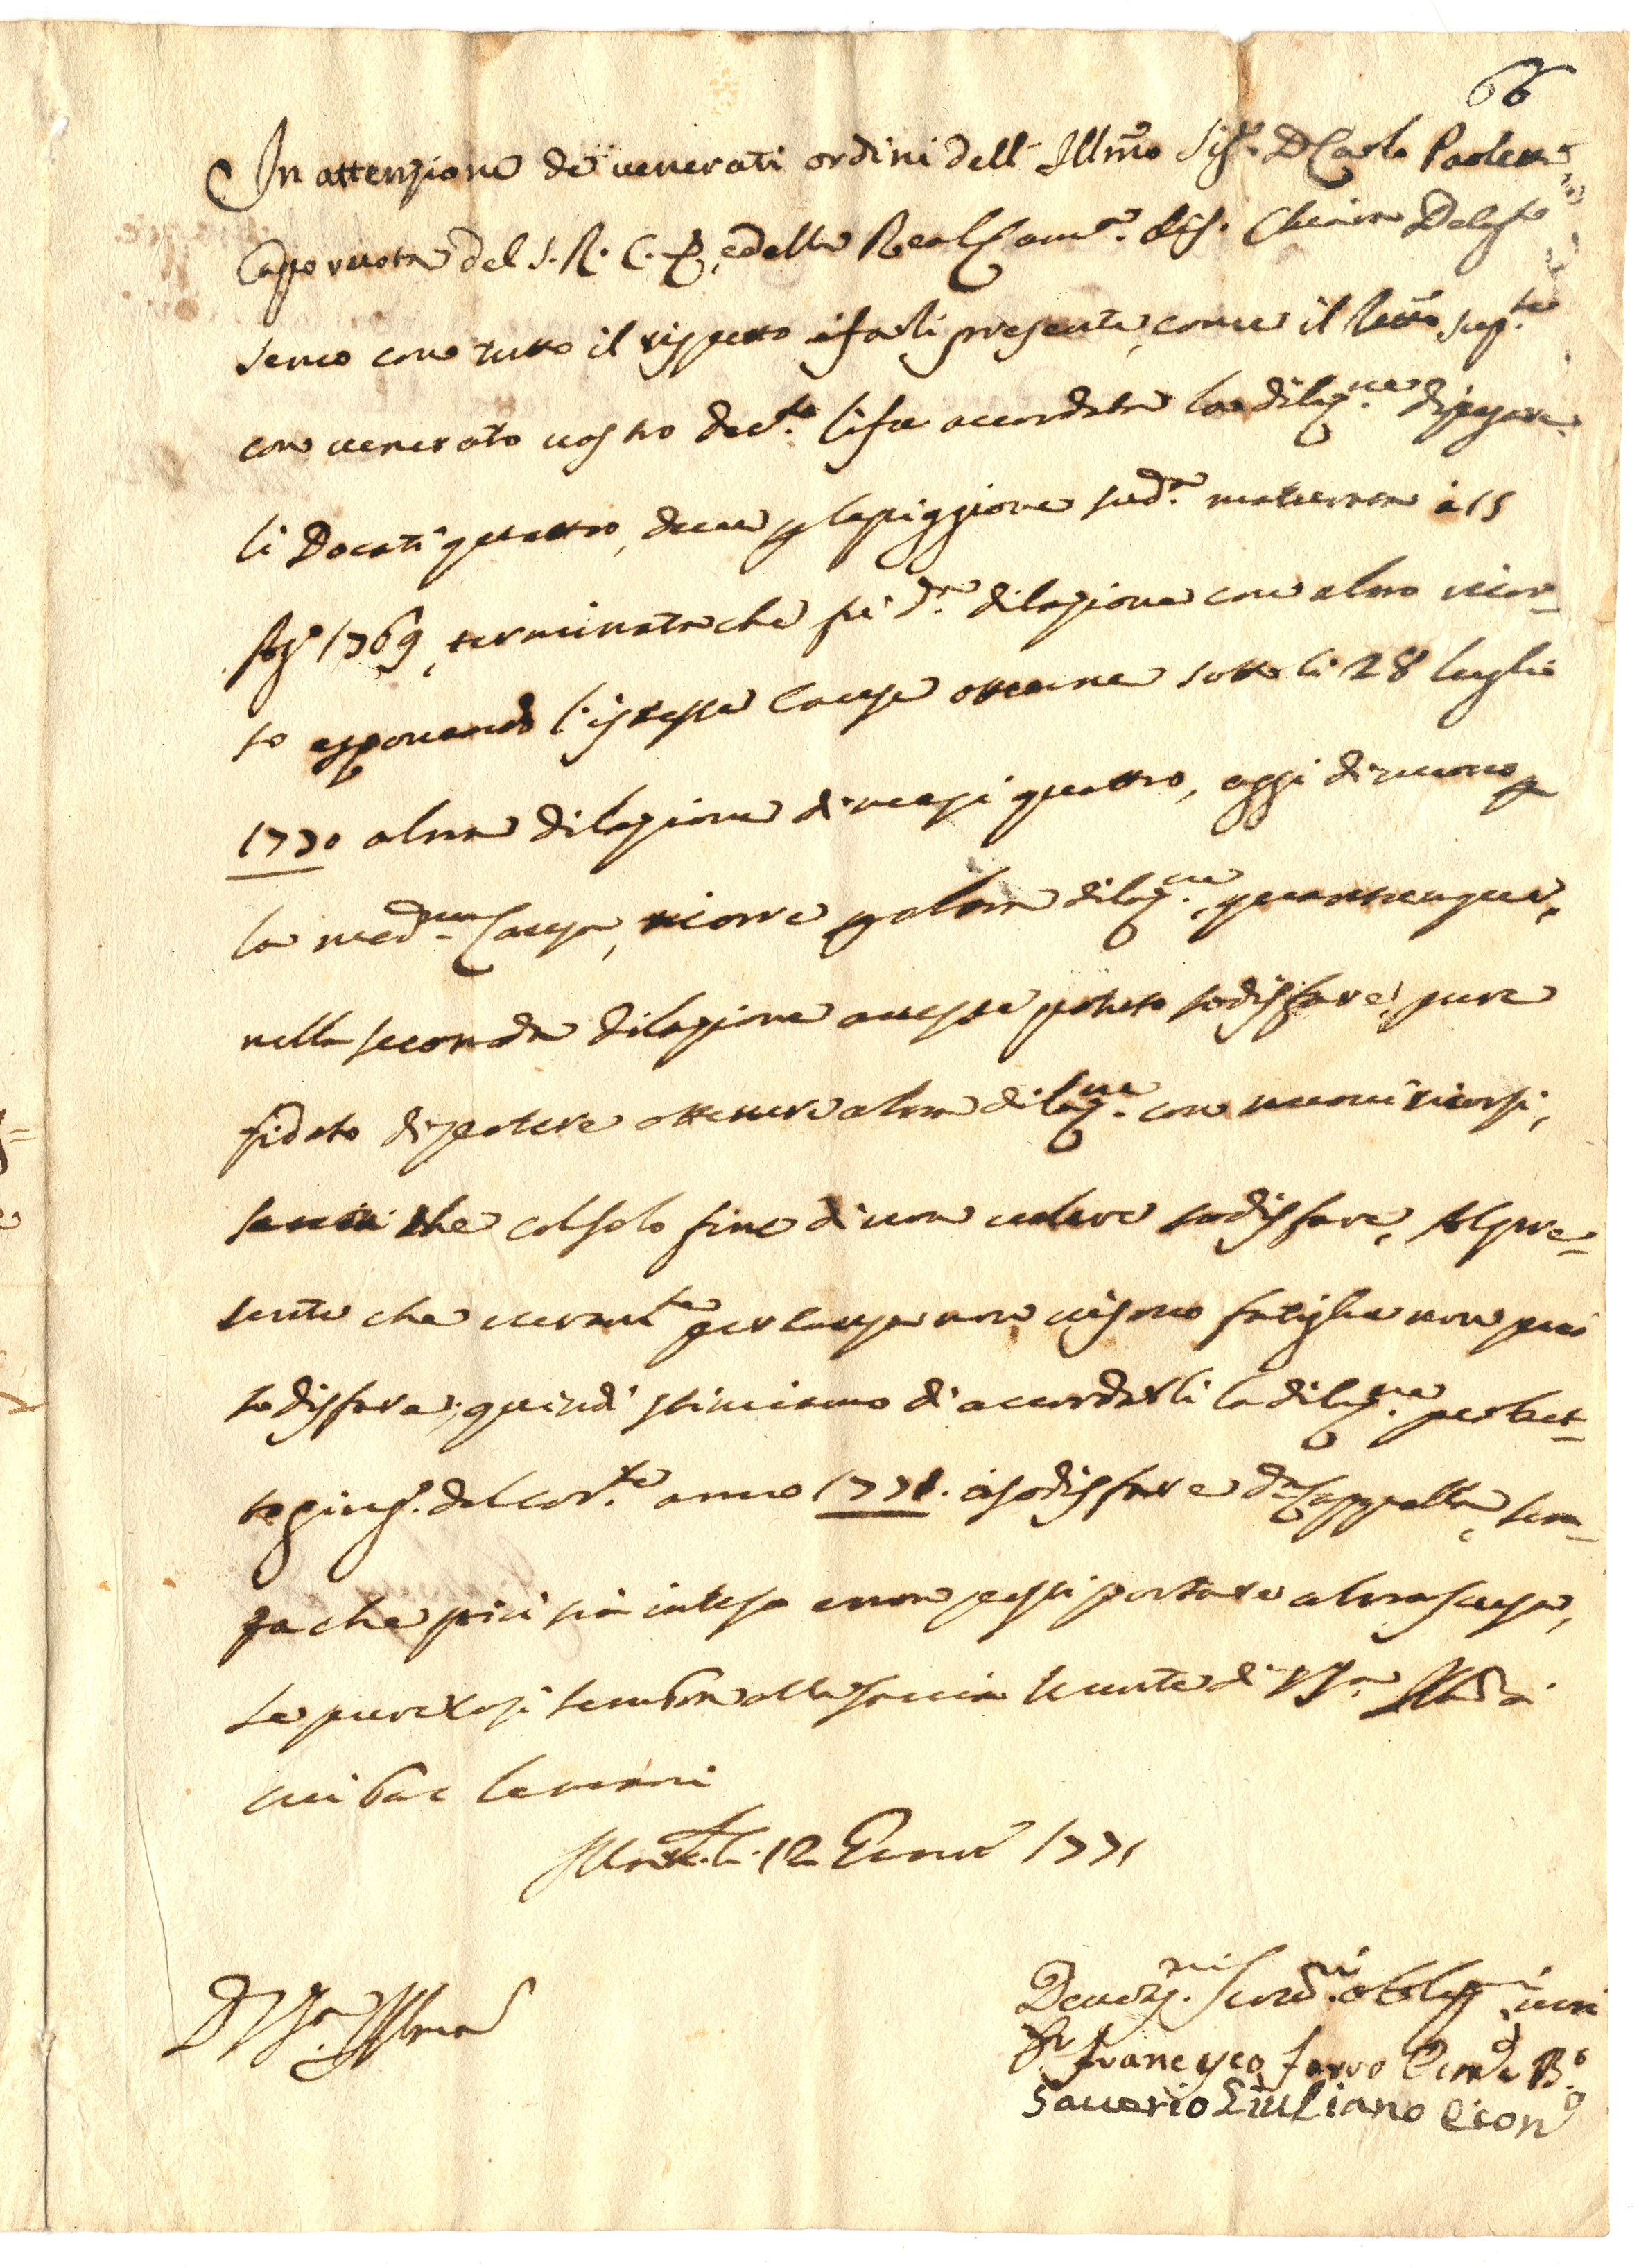 66
In attenzione de venerati ordini dell' Illmo Sig.r D Carlo Paoletti
Capo ruota del S. R. C. P. e della Real Cam.ra di S. Chiara Deleg.to
semo con tutto il rispetto a farli presente, come il Retro sup.te
con venerato vostro dec.to li fu accordata la dilaz.ne di pagare
li Docati quattro, deve p la piggione sud.a maturata à 15
Ag.o 1769, terminata che fù d.a dilazione con altro ricor-
so esponendo l'istessa causa ottenne sotto li 28 luglio
1770 altra dilazione di mesi quattro, oggi di nuovo p
la med.ma Causa, ricorre p altra dilaz.ne, quantunque,
nella seconda dilazione avesse potuto sodisfare, pure
fidato di potere ottenere altra dilaz.ne con nuovi ricorsi,
che col solo fine di non volere sodisfare, Al pre-
sente che veram.te per causa non vi sono fatighe non può
sodisfare, quindi stimiamo di accordarli la dilaz.ne per tut-
to giug.o del cor.te anno 1771. à sodisfare d.a Cappella, sen-
za che più sia inteso e non possi portare altra scusa,
Se pure così sembra alla savia mente di V.S. Illma à
cui bac le mani
li 12 Genn.o 1771
D V.S. Illma
Devotis.mi Servid.ri obblig.mi veri
Fr Francesco Ferro Econ.o B.o
Saverio Giuliano Econ.o